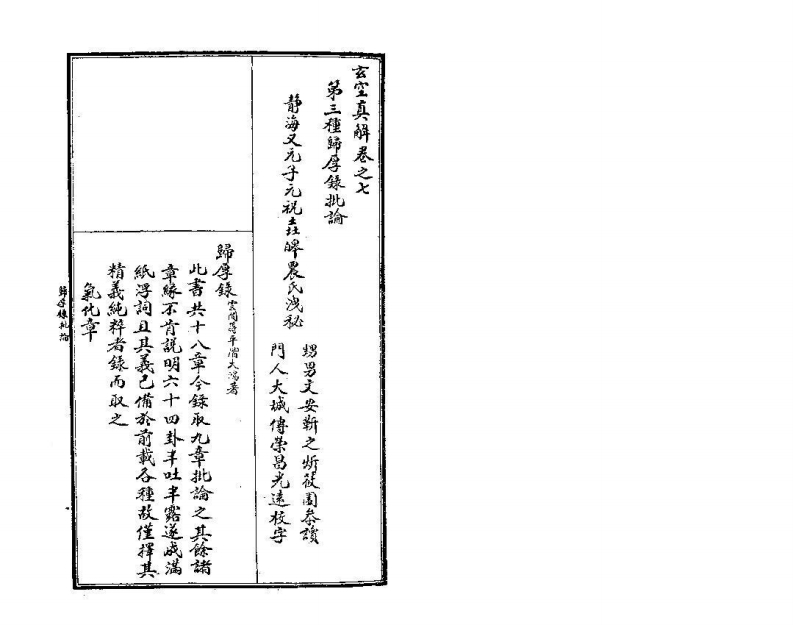 玄空真解卷之七
第三種歸厚錄批論
靜海又元子元祝垚暤農氏洩秘
甥男文安靳之炘筱園叅讀
門人大城傅榮昌光遠校字
歸厚錄雲間蔣平階大鴻著
此書共十八章今錄取九章批論之其餘諸
章緣不肯説明六十四卦半吐半露遂成滿
紙浮詞且其義已備於前載各種故僅擇其
精義純粹者錄而取之
氣化章
歸厚錄批論